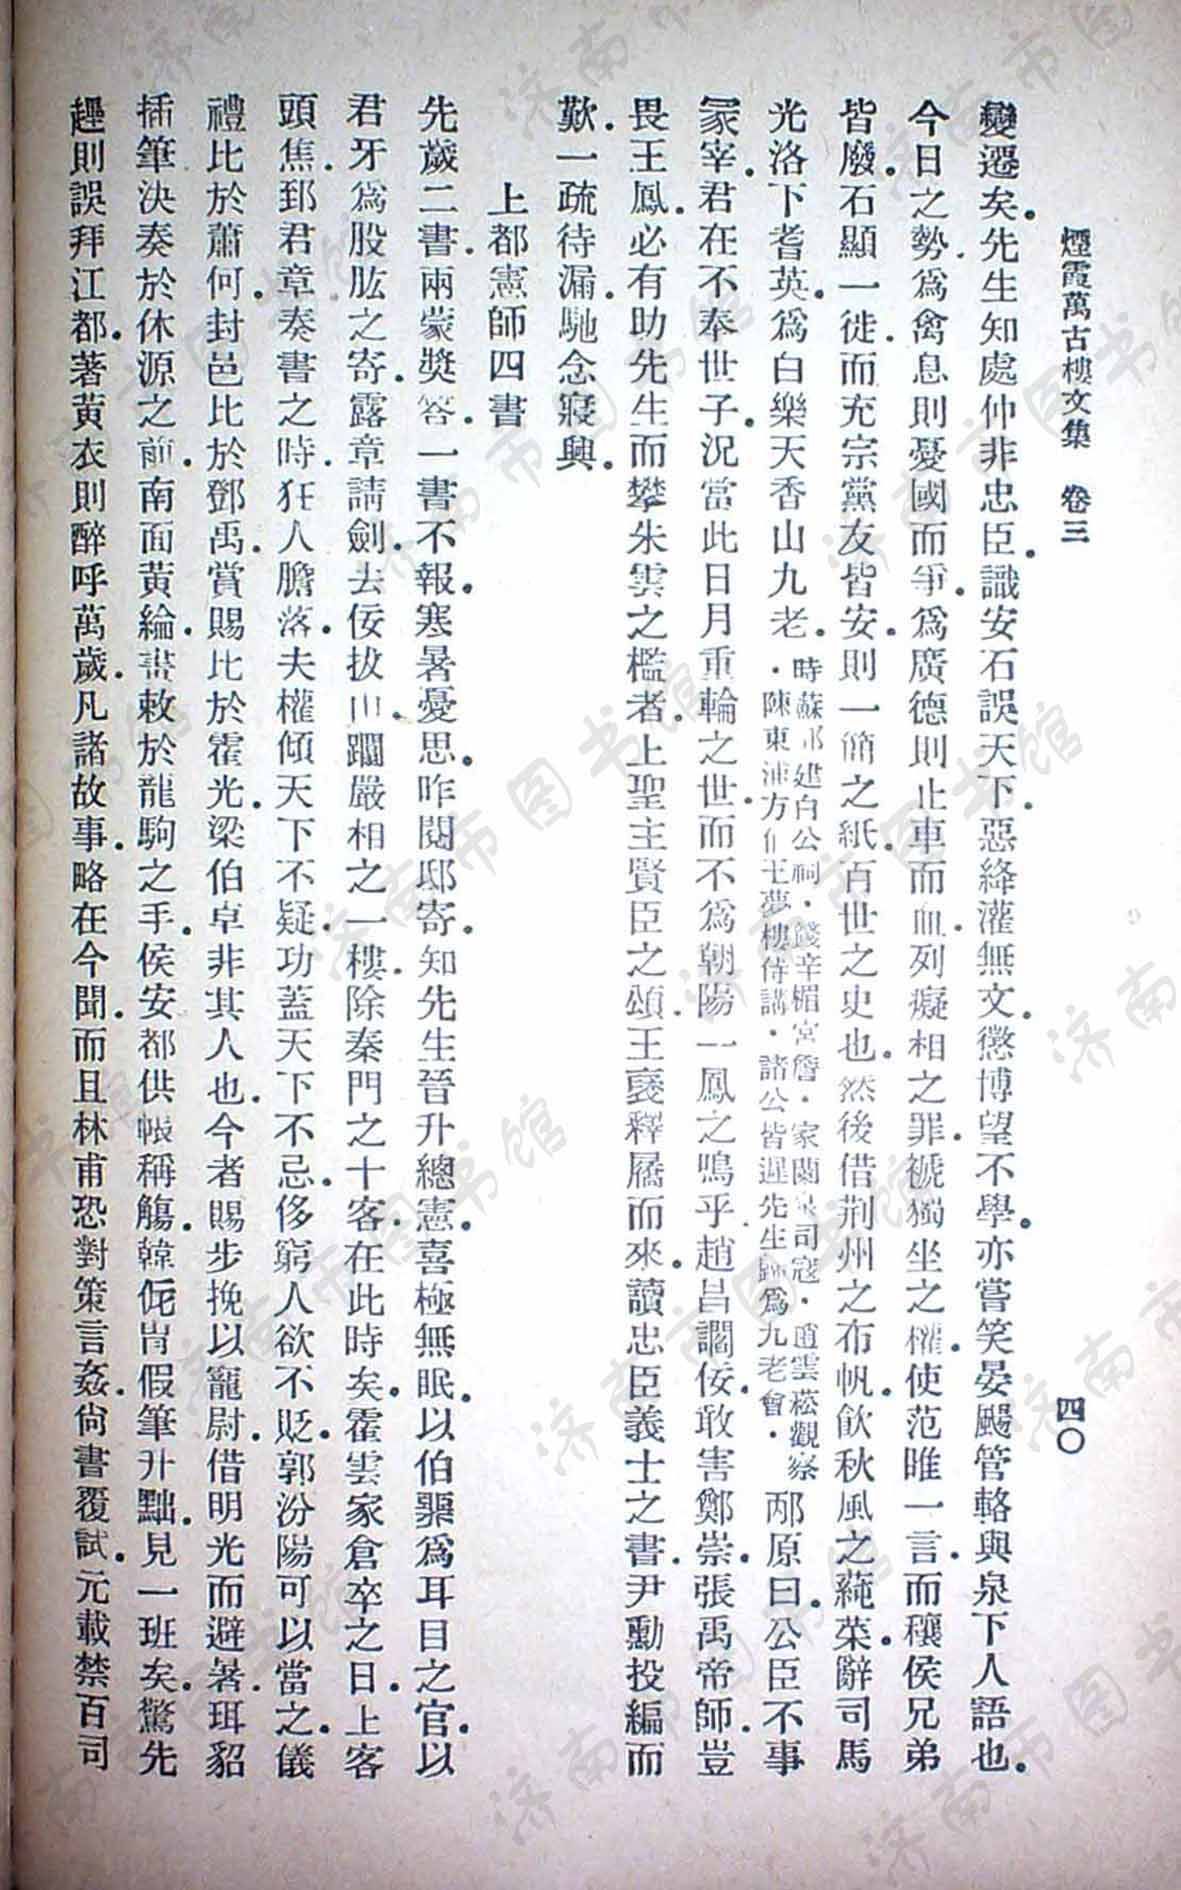 煙霞萬古樓文集 卷三 四〇
變遷矣。先生知處仲非忠臣。識安石誤天下。惡絳灌無文。懲博望不學。亦嘗笑晏颺管輅與泉下人語也。
今日之勢。為禽息則憂國而爭。為廣德則止車而血。列癡相之罪。褫獨坐之權。使范睢一言而穰侯兄弟
皆廢。石顯一徙而充宗黨友皆安。則一簡之紙。百世之史也。然後借荆州之布帆。飲秋風之蒓菜。辭司馬
光洛下耆英。為白樂天香山九老。
時蘇 建白公祠。錢辛楣宮詹。家蘭泉司寇。趙雲崧觀察
。陳東浦方伯王夢樓侍講。諸公皆遲先生歸為九老會。
邴原曰。公臣不事
冢宰。君在不奉世子。況當此日月重輪之世。而不為朝陽一鳳之鳴乎。趙昌讇佞。敢害鄭崇。張禹帝師。豈
畏王鳳。必有助先生而攀朱雲之檻者。上聖主賢臣之頌。王襃釋屩而來。讀忠臣義士之書。尹勳投編而
歎。一疏待漏。馳念寢興。
上都憲師四書
先歲二書。兩蒙獎答。一書不報。寒暑憂思。昨閱邸寄。知先生晉升總憲。喜極無眠。以伯羆為耳目之官。以
君牙為股肱之寄。露章請劍。去佞拔山。躙嚴相之一樓。除秦門之十客。在此時矣。霍雲家倉卒之日。上客
頭焦。郅君章奏書之時。狂人膽落。夫權傾天下不疑。功蓋天下不忌。侈窮人欲不貶。郭汾陽可以當之。儀
禮比於蕭何。封邑比於鄧禹。賞賜比於霍光。梁伯卓非其人也。今者賜步挽以寵尉。借明光而避暑。珥貂
插筆。決奏於休源之前。南面黃綸。書敕於龍駒之手。侯安都供帳稱觴。韓侂冑假筆升黜。見一班矣。驚先
趯則誤拜江都。著黃衣則醉呼萬歲。凡諸故事。略在今聞。而且林甫恐對策言姦。尙書覆試。元載禁百司